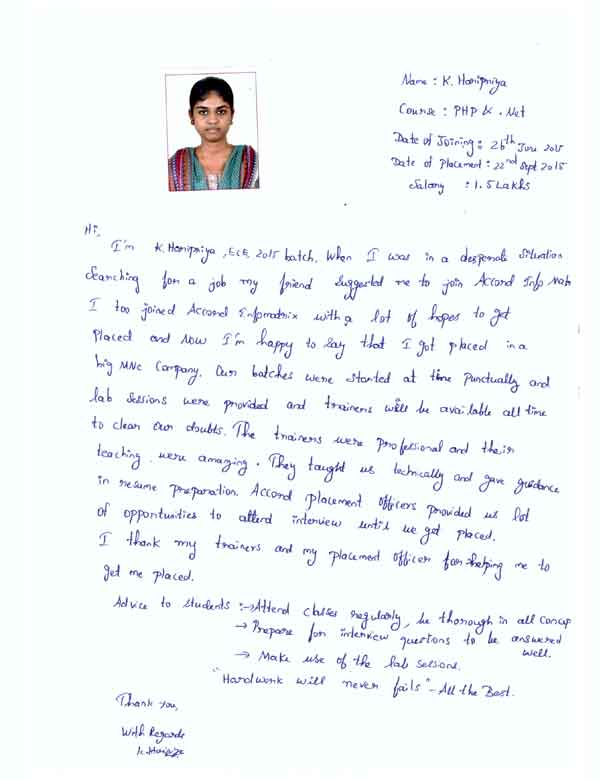 Name : K. Haripriya
Course : PHP & .Net
Date of Joining : 26th Jun 2015
Date of Placement : 22nd Sept 2015
Salary : 1.5 Lakhs
Hi,
I'm K. Haripriya, ECE, 2015 batch. When I was in a desperate situation
Searching for a job my friend suggested me to join Accord Info Matr
I too joined Accord Infomatrix with a lot of hopes to get
placed and now I'm happy to say that I got placed in a
big MNC Company. Our batches were started at time punctually and
lab sessions were provided and trainers will be available all time
to clear our doubts. The trainers were professional and their
teaching were amazing. They taught us technically and gave guidance
in resume preparation. Accord placement officers provided us lot
of opportunities to attend interview until we get placed.
I thank my trainers and my placement officer for helping me to
get me placed.
Advice to students :→ Attend classes regularly, be thorough in all concep
→ Prepare for interview questions to be answered
well.
→ Make use of the lab sessions.
"Hardwork will never fails" - All the Best.
Thank you,
With Regards